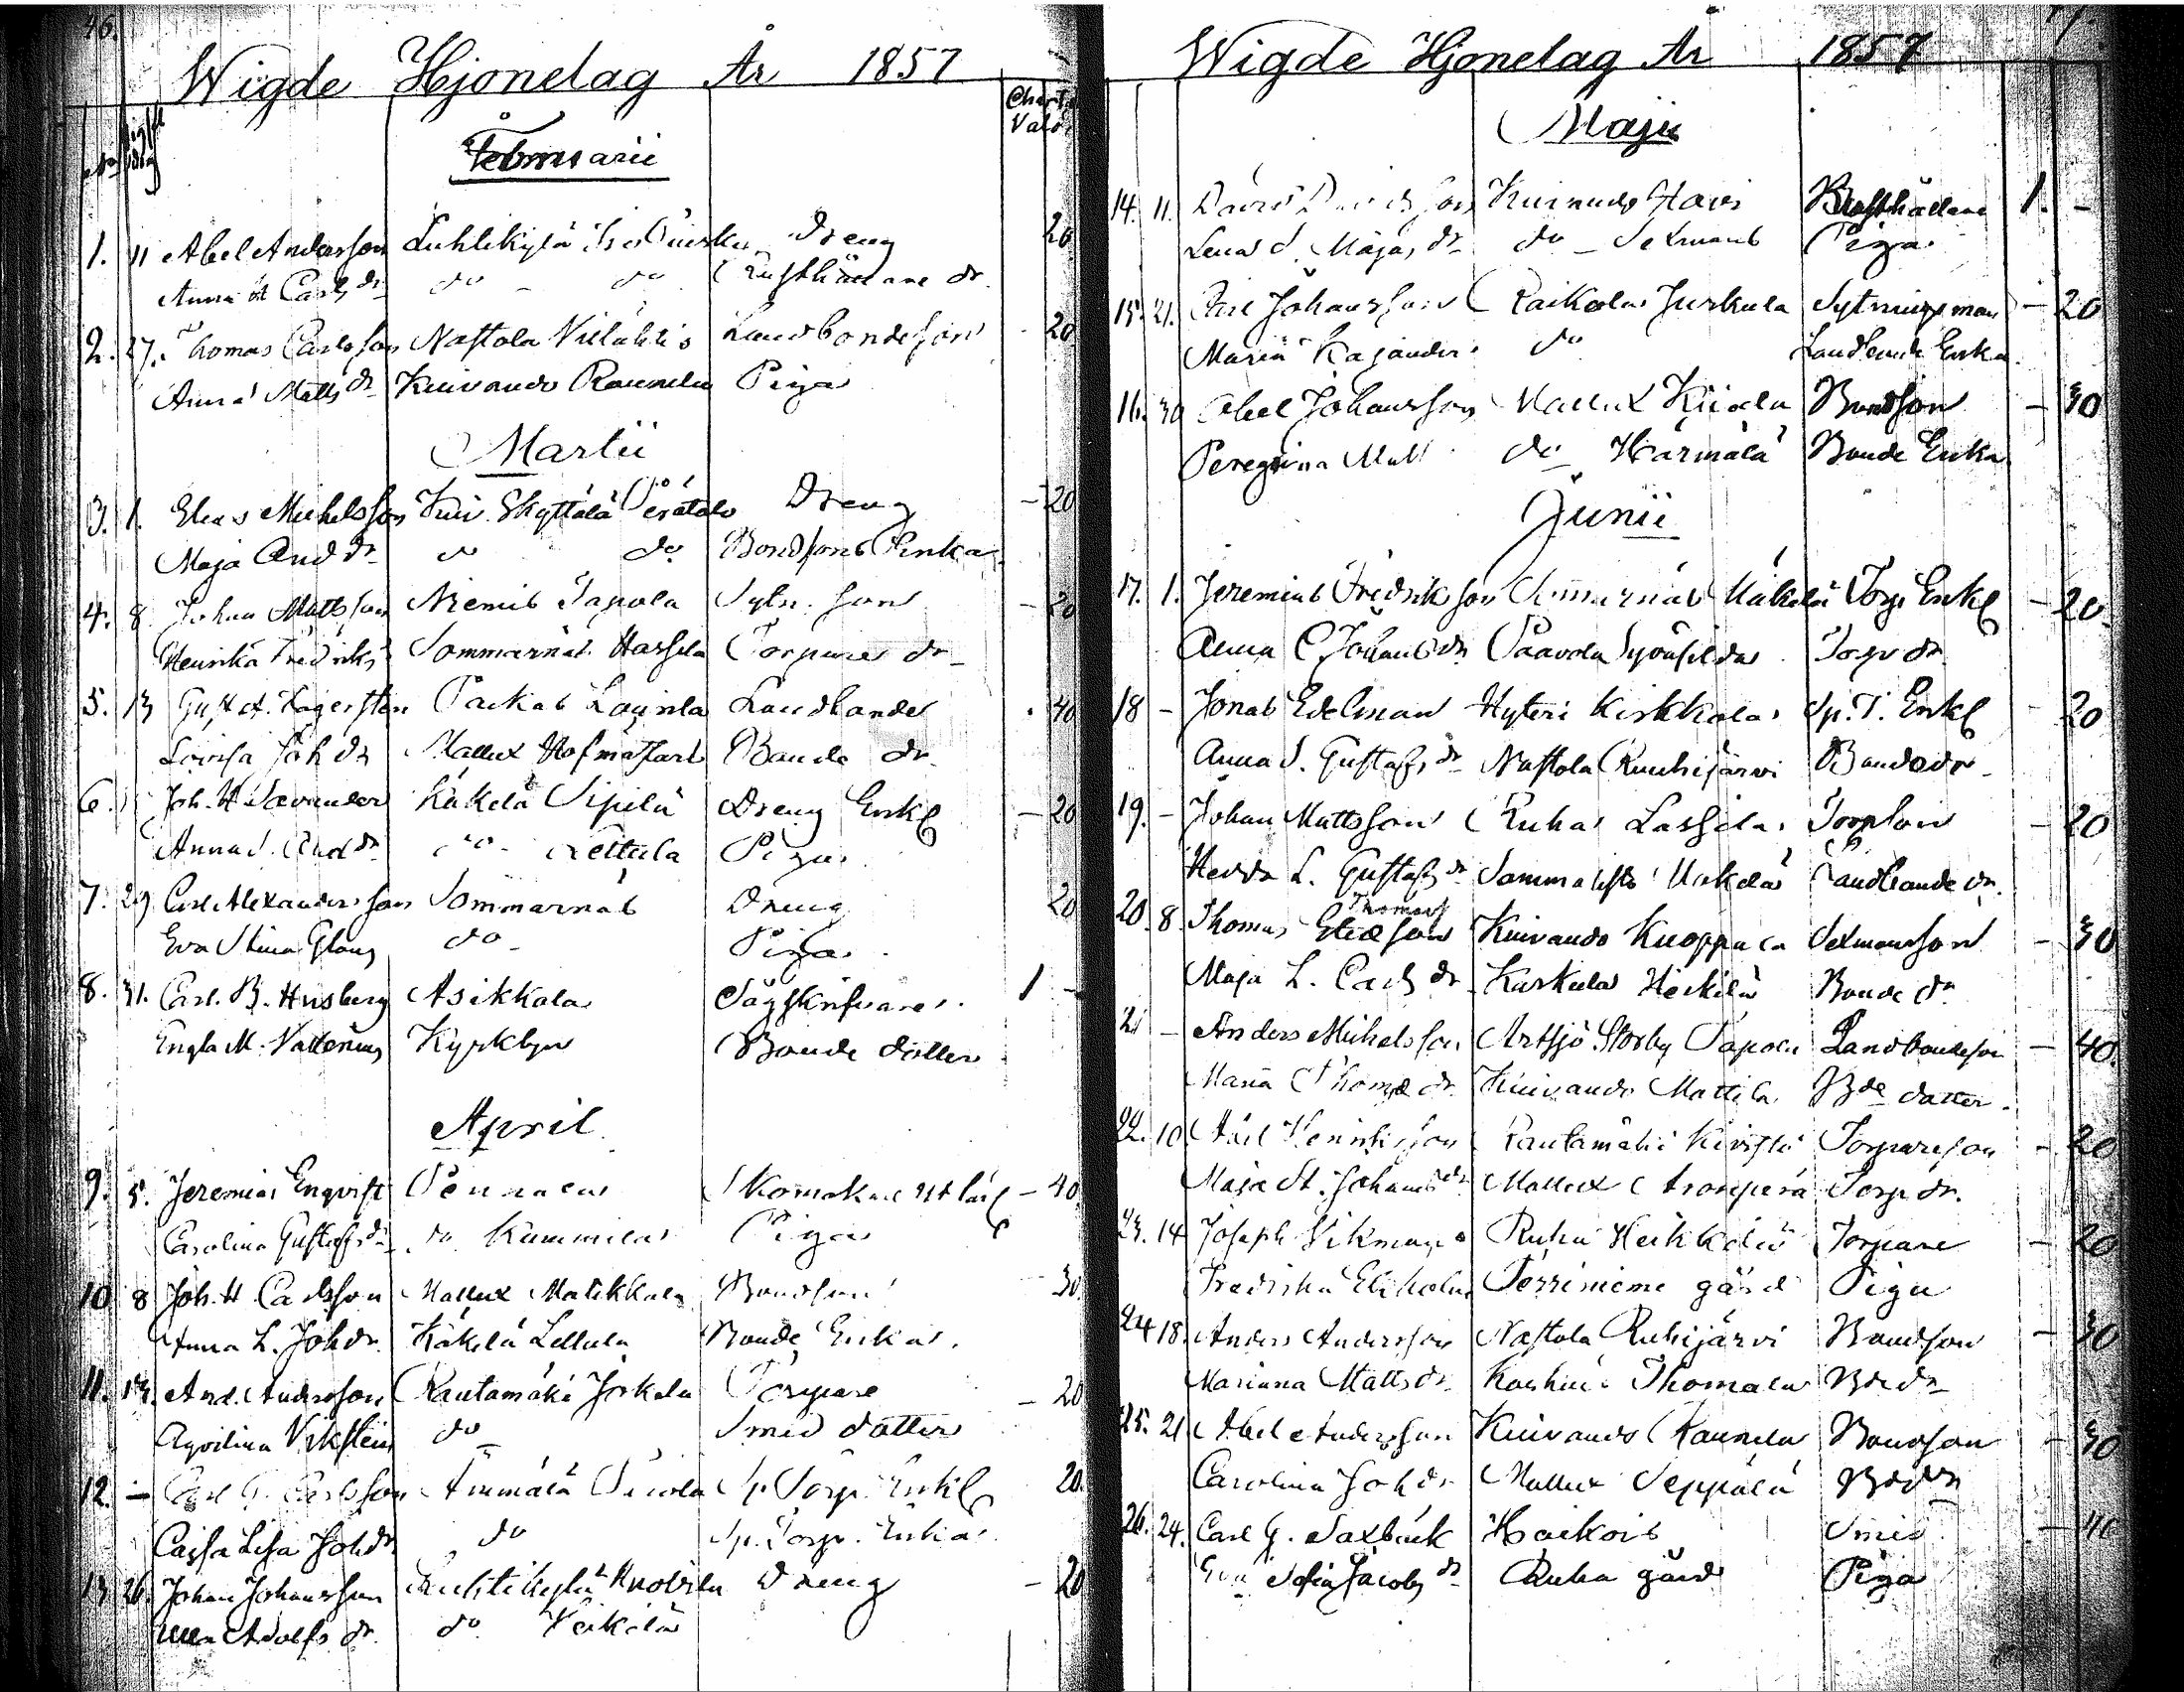 46.
Wigde Hjonelag År 1857
Charta Valör
Februarii
1. 11 Abel Andersson Luhtikylä Dreng 20
Anna Carls dr do do Rusthållare dr
2. 27. Thomas Carlsson Nastola Villähtis Landbondeson 20
Anna Matts dr Kuivando Raunela Piga
Martii
3. 1. Elias Michelsson Kuiv. Skyttälä Perätalo Dreng - 20
Maja And dr do do Bondsons Enka
4. 8. Johan Mattsson Niemis Tapola Sytn. son - 20
Henrika Fredriks Sommarnäs Hassela Torpares dr
5. 13 Gust. A. Lagersten Landbonde 40
Lovisa Joh dr Mallux Bonde dr
6. Joh. H. Savander Käkelä Sipilä Dreng Enkl - 20
Anna And dr do Lettula Piga
7. 29 Carl Alexandersson Sommarnäs Dreng 20
Eva Stina Glans do Piga
8. 31. Carl. B. Husberg Asikkala Sågskrifvare 1 -
Engla M. Kyrkbyn Bonde dotter
April
9. 5. Jeremias Enqvist Pennala Skomakare - 40
Carolina Gustafs dr do Kummila Piga
10 8 Joh. H. Carlsson Mallux Matikkala Bondson 30
Anna L. Joh dr. Käkelä Lettula Bonde Enka
11. 13. And. Andersson Rautamäki Jorkela Torpare - 20
Aqvilina Vikstein do Smed dotter
12. - Carl G. Carlsson Torp. Enkl 20.
Cajsa Lisa Joh dr do Sp. Torp. Enka
13 26. Johan Johansson Luhtikylä Dreng - 20
Adolfs dr. do Heikilä
Wigde Hjonelag År 1857
Maji
14. 11. David Davidsson Kuivando Rusthållare 1. -
Lena S. Majas dr do Piga
15. 21. Carl Johansson Raikola Jurkula Sytningsman - 20
Maria Kajander do Landbonde Enka
16. 30 Abel Johansson Mallux Kiiala Bondson - 30
Peregrina Matt do Härmälä Bonde Enka
Junii
17. 1. Jeremias Fredriksson Sommarnäs Mäkelä Torp. Enkl - 20
Anna C. Johans dr Paavola Torp dr
18 - Jonas Edelman Hyteri Kirkkola Sp. T. Enkl 20
Anna S. Gustafs dr Nastola Ruuhijärvi Bonde dr
19. - Johan Mattsson Ruha Lassila Torpson - 20
Hedda L. Gustafs dr Mäkelä Landbonde dr.
20. 8 Thomas Thomas son Kuivando Kuoppala Sexmansson - 30
Maja L. Carls dr Karkula Heikilä Bonde dr
21 - Anders Michelsson Artsjö Storby Tapola Landbondeson - 40.
Maria Thoms dr Kuivando Mattila Bde dotter.
22. 10 Abel Henriksson Rautamäki Torpareson - 20
Maja St. Johans dr Mallux Torp dr.
23. 14 Joseph Vikman Ruha Heikkilä Torpare - 20
Fredrika Terriniemi gård Piga
24 18. Anders Andersson Nastola Ruhijärvi Bondson - 30
Marianna Matts dr Thomala Bde dr
25. 21 Abel Andersson Kuivando Raunela Bondson - 30
Carolina Joh dr Mallux Seppälä Bde dr
26. 24. Carl G. Saxbäck Haikois Smed - 40
Eva Sofia Jacobs dr Ruha gård Piga